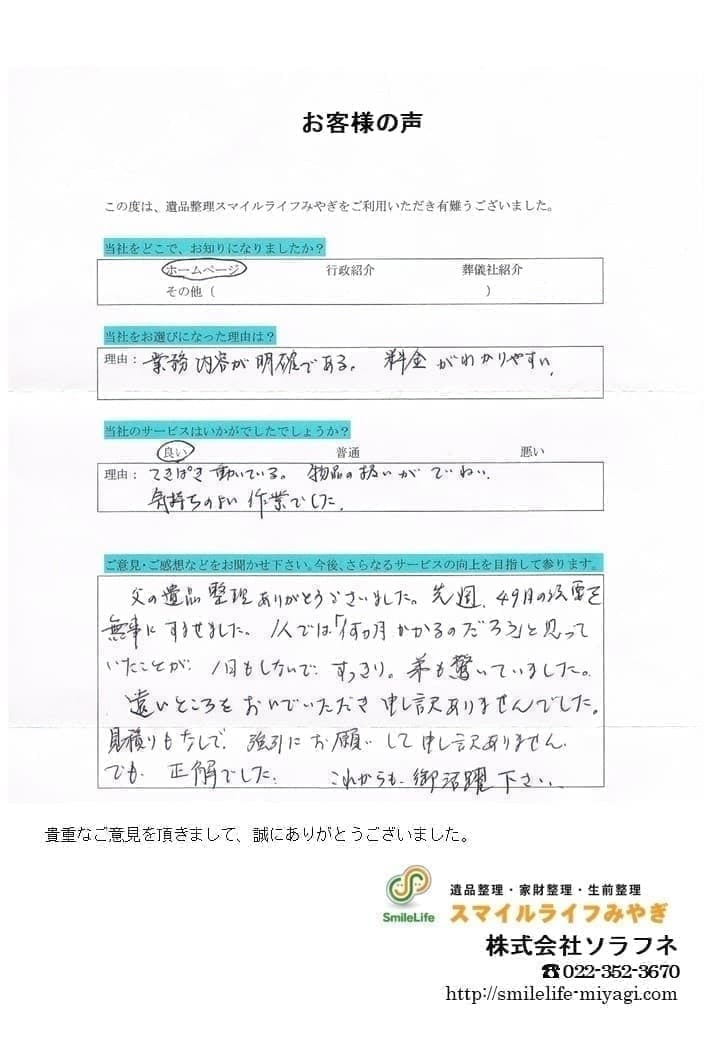 お客様の声
この度は、遺品整理スマイルライフみやぎをご利用いただき有難うございました。
当社をどこで、お知りになりましたか？
ホームページ 行政紹介 葬儀社紹介
その他（ ）
当社をお選びになった理由は？
理由： 業務内容が明確である。 料金がわかりやすい、
当社のサービスはいかがでしたでしょうか？
良い 普通 悪い
理由： てきぱき動いている。 物品の扱いがていねい、
気持ちのよい作業でした、
ご意見・ご感想などをお聞かせ下さい。今後、さらなるサービスの向上を目指して参ります。
父の遺品整理ありがとうございました。先週、49日の法要を
無事にすませました。1人では「何ヵ月かかるのだろう」と思って
いたことが、1日もしないで、すっきり。弟も驚いていました。
遠いところをおいでいただき申し訳ありませんでした。
見積りもなしで、強引にお願いして申し訳ありません、
でも、正解でした、 これからも、御活躍下さい、
貴重なご意見を頂きまして、誠にありがとうございました。
SmileLife
遺品整理・家財整理・生前整理
スマイルライフみやぎ
株式会社ソラフネ
☎022-352-3670
http://smilelife-miyagi.com